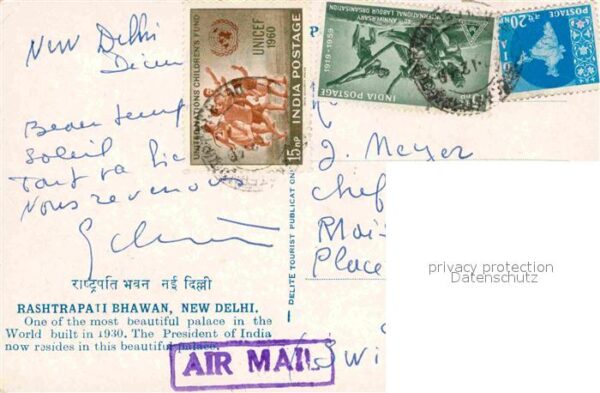 New Delhi
Beau temps
Soleil
Tout va bie
Nous revenons
राष्ट्रपति भवन नई दिल्ली
RASHTRAPATI BHAWAN, NEW DELHI.
One of the most beautiful palace in the
World built in 1930. The President of India
now resides in this beautiful palace.
AIR MAIL
DELITE TOURIST PUBLICATION
UNITED NATIONS CHILDREN'S FUND
UNICEF
1960
INDIA POSTAGE
15 nP
1919-1959
ANNIVERSARY
INTERNATIONAL LABOUR ORGANISATION
INDIA POSTAGE
15 nP
न.पै.20 nP
J. Meyer
Chef
Place
Swi
privacy protection
Datenschutz